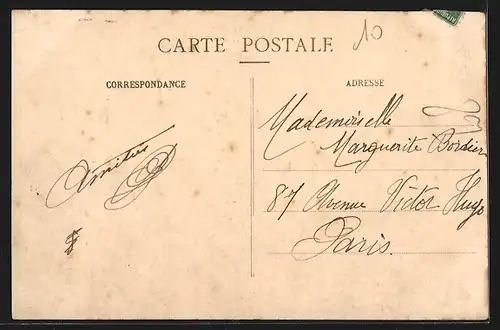 10
CARTE POSTALE
CORRESPONDANCE
ADRESSE
Amitiés
Mademoiselle
Marguerite Bordier
87 Avenue Victor Hugo
Paris.